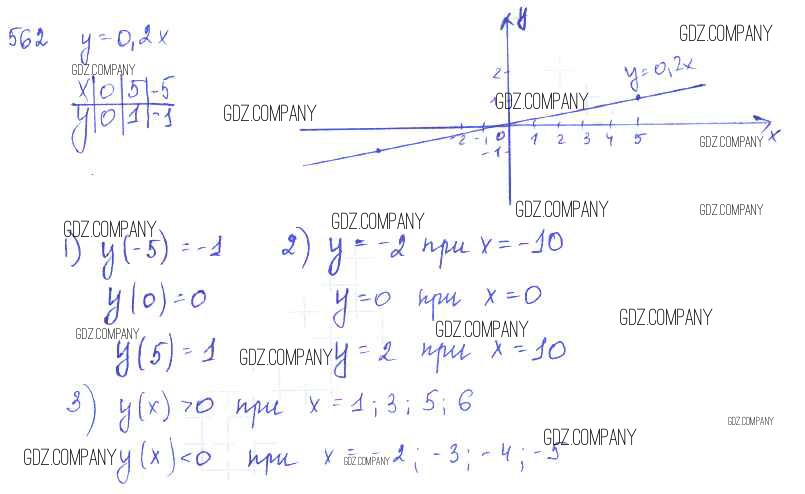 562 y=0,2x
GDZ.COMPANY
x 0 5 -5
y 0 1 -1
GDZ.COMPANY
y
GDZ.COMPANY
2
y=0,2x
1
GDZ.COMPANY
-2 -1 0 1 2 3 4 5 x
-1
GDZ.COMPANY
GDZ.COMPANY
GDZ.COMPANY
GDZ.COMPANY
GDZ.COMPANY
1) y(-5) = -1 2) y = -2 при x = -10
y(0) = 0 y = 0 при x = 0
GDZ.COMPANY
GDZ.COMPANY
GDZ.COMPANY
y(5) = 1 y = 2 при x = 10
GDZ.COMPANY
3) y(x) >0 при x = 1; 3; 5; 6
GDZ.COMPANY
GDZ.COMPANY
y(x) <0 при x = -2; -3; -4; -5
GDZ.COMPANY
GDZ.COMPANY